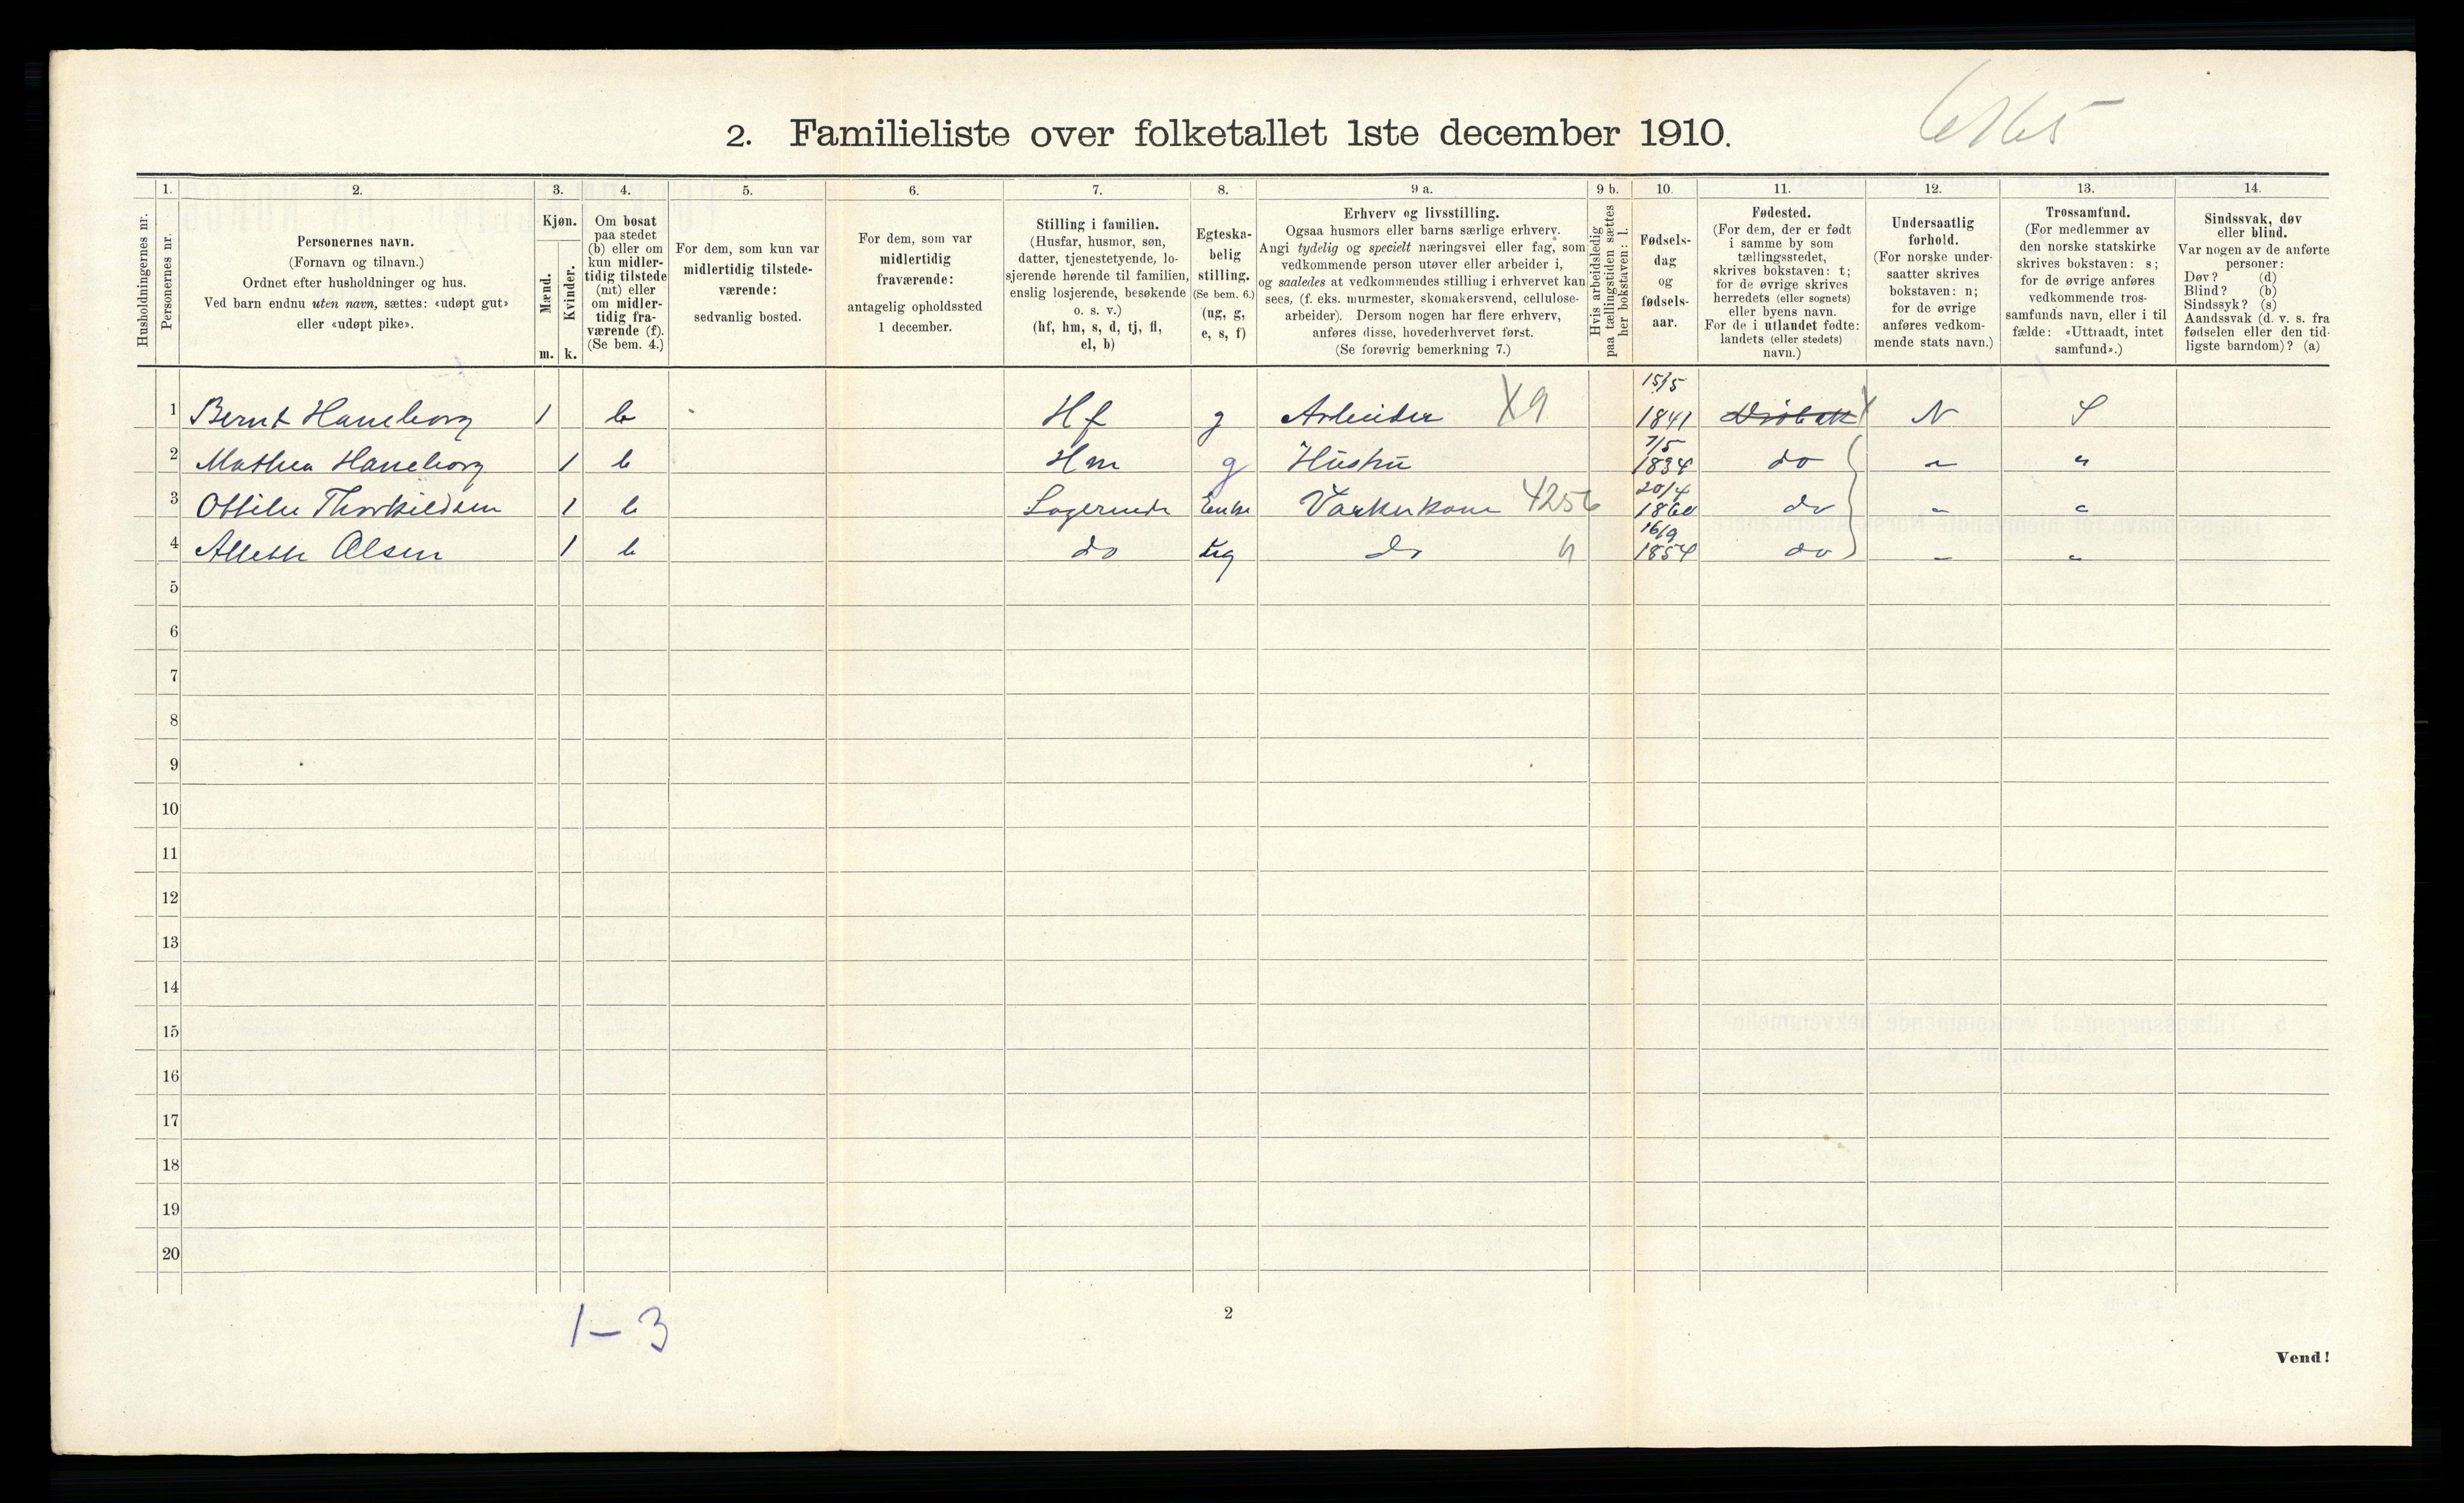 2. Familieliste over folketallet 1ste december 1910.
Husholdningernes nr.
1.
Personernes nr.
2.
Personernes navn.
(Fornavn og tilnavn.)
Ordnet efter husholdninger og hus.
Ved barn endnu uten navn, sættes: «udøpt gut»
eller «udøpt pike».
3.
Kjøn.
Mænd.
Kvinder.
m. k.
4.
Om bosat
paa stedet
(b) eller om
kun midler-
tidig tilstede
(mt) eller
om midler-
tidig fra-
værende (f).
(Se bem. 4.)
5.
For dem, som kun var
midlertidig tilstede-
værende:
sedvanlig bosted.
6.
For dem, som var
midlertidig
fraværende:
antagelig opholdssted
1 december.
7.
Stilling i familien.
(Husfar, husmor, søn,
datter, tjenestetyende, lo-
sjerende hørende til familien,
enslig losjerende, besøkende
o. s. v.)
(hf, hm, s, d, tj, fl,
el, b)
8.
Egteska-
belig
stilling.
(Se bem. 6.)
(ug, g,
e, s, f)
9 a.
Erhverv og livsstilling.
Ogsaa husmors eller barns særlige erhverv.
Angi tydelig og specielt næringsvei eller fag, som
vedkommende person utøver eller arbeider i,
og saaledes at vedkommendes stilling i erhvervet kan
sees, (f. eks. murmester, skomakersvend, cellulose-
arbeider). Dersom nogen har flere erhverv,
anføres disse, hovederhvervet først.
(Se forøvrig bemerkning 7.)
9 b.
Hvis arbeidsledig
paa tællingstiden sættes
her bokstaven: l.
10.
Fødsels-
dag
og
fødsels-
aar.
11.
Fødested.
(For dem, der er født
i samme by som
tællingsstedet,
skrives bokstaven: t;
for de øvrige skrives
herredets (eller sognets)
eller byens navn.
For de i utlandet fødte:
landets (eller stedets)
navn.)
12.
Undersaatlig
forhold.
(For norske under-
saatter skrives
bokstaven: n;
for de øvrige
anføres vedkom-
mende stats navn.)
13.
Trossamfund.
(For medlemmer av
den norske statskirke
skrives bokstaven: s;
for de øvrige anføres
vedkommende tros-
samfunds navn, eller i til
fælde: «Uttraadt, intet
samfund».)
14.
Sindssvak, døv
eller blind.
Var nogen av de anførte
personer:
Døv? (d)
Blind? (b)
Sindssyk? (s)
Aandssvak (d. v. s. fra
fødselen eller den tid-
ligste barndom)? (a)
1 Bernt Haneborg 1 b Hf g Arbeider X9 15/5 1841 Drøbak N S
2 Mathea Haneborg 1 b Hm g Hustru 7/5 1834 do " "
3 Ottilie Thorkildsen 1 b Logerende Enke Vaskerkone 20/4 1860 do " "
4 Allette Olsen 1 b do Ug do 16/9 1854 do " "
5
6
7
8
9
10
11
12
13
14
15
16
17
18
19
20
1-3
2
Vend!